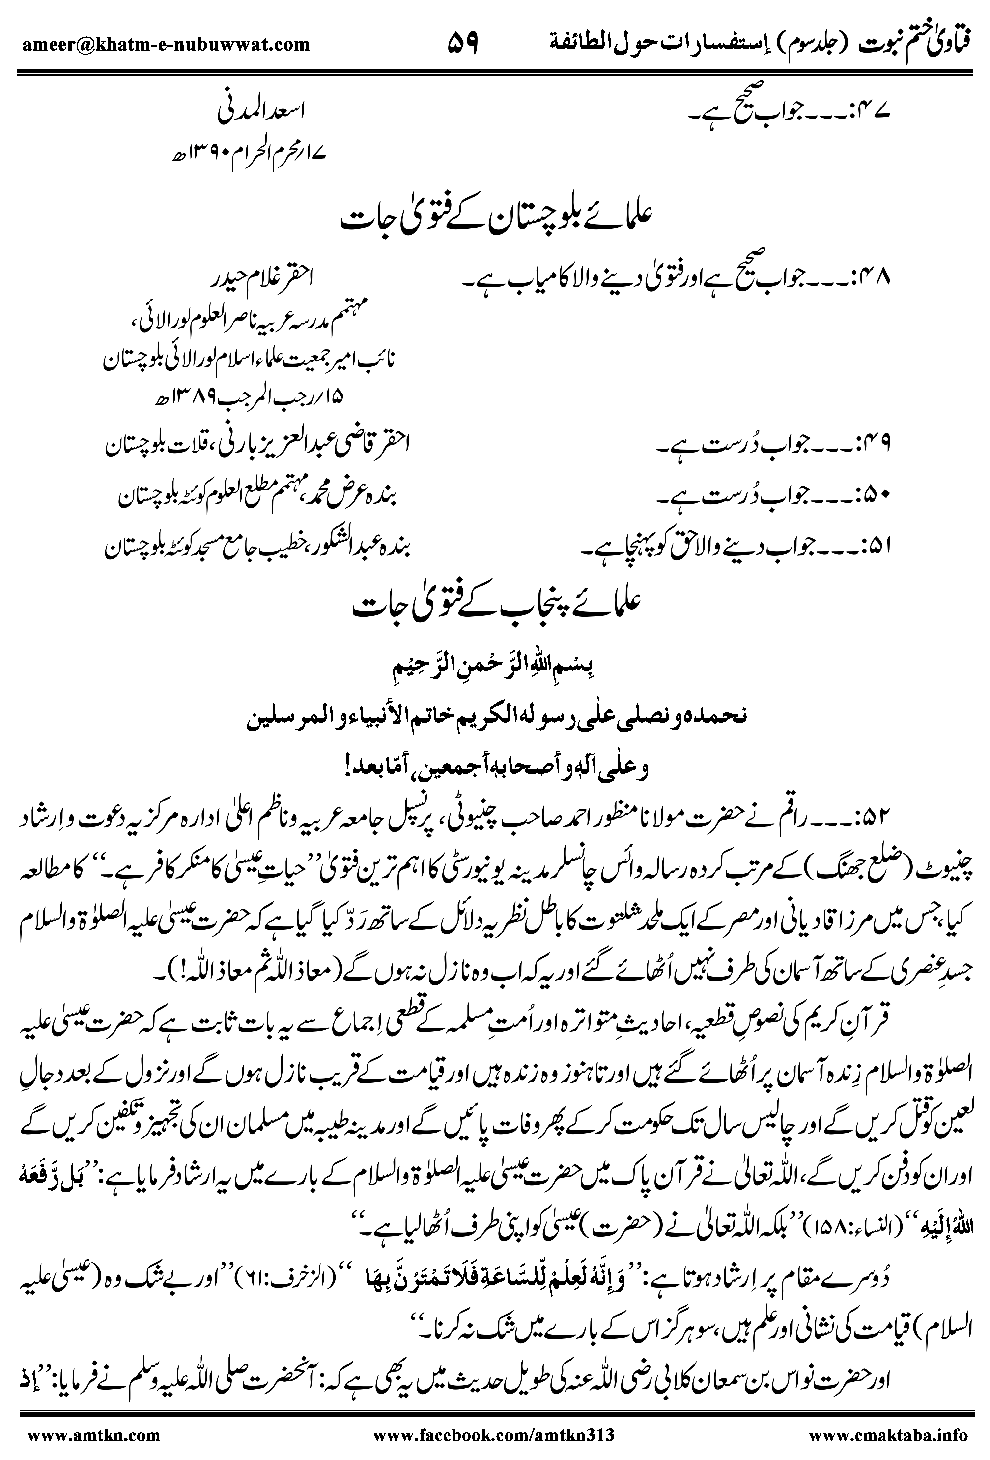 فتاویٰ ختم نبوت (جلد سوم) إستفسارات حول الطائفة ۵۹ ameer@khatm-e-nubuwwat.com
۴۷:۔۔۔جواب صحیح ہے۔ اسعد المدنی
۱۷؍محرم الحرام ۱۳۹۰ھ
علمائے بلوچستان کے فتویٰ جات
۴۸:۔۔۔جواب صحیح ہے اور فتویٰ دینے والا کامیاب ہے۔ احقر غلام حیدر
مہتمم مدرسہ عربیہ ناصر العلوم لورالائی،
نائب امیر جمعیت علماء اسلام لورالائی بلوچستان
۱۵؍رجب المرجب ۱۳۸۹ھ
۴۹:۔۔۔جواب دُرست ہے۔ احقر قاضی عبدالعزیز بارنی، قلات بلوچستان
۵۰:۔۔۔جواب دُرست ہے۔ بندہ عرض محمد، مہتمم مطلع العلوم کوئٹہ بلوچستان
۵۱:۔۔۔جواب دینے والا حق کو پہنچا ہے۔ بندہ عبدالشکور، خطیب جامع مسجد کوئٹہ بلوچستان
علمائے پنجاب کے فتویٰ جات
بِسْمِ اللهِ الرَّحْمٰنِ الرَّحِيْمِ
نحمده ونصلی علٰی رسوله الكريم خاتم الأنبياء والمرسلين
وعلٰی آلهٖ وأصحابهٖ أجمعين، أمّا بعد!
۵۲:۔۔۔راقم نے حضرت مولانا منظور احمد صاحب چنیوٹی، پرنسپل جامعہ عربیہ وناظم اعلیٰ ادارہ مرکزیہ دعوت واِرشاد
چنیوٹ (ضلع جھنگ) کے مرتب کردہ رسالہ وائس چانسلر مدینہ یونیورسٹی کا اہم ترین فتویٰ ’’حیاتِ عیسیٰ کا منکر کافر ہے۔‘‘ کا مطالعہ
کیا، جس میں مرزا قادیانی اور مصر کے ایک ملحد شلتوت کا باطل نظریہ دلائل کے ساتھ رَدّ کیا گیا ہے کہ حضرت عیسیٰ علیہ الصلوٰۃ والسلام
جسدِ عنصری کے ساتھ آسمان کی طرف نہیں اُٹھائے گئے اور یہ کہ اب وہ نازل نہ ہوں گے (معاذ اللہ ثم معاذ اللہ!)۔
قرآنِ کریم کی نصوصِ قطعیہ، احادیثِ متواترہ اور اُمتِ مسلمہ کے قطعی اِجماع سے یہ بات ثابت ہے کہ حضرت عیسیٰ علیہ
الصلوٰۃ والسلام زِندہ آسمان پر اُٹھائے گئے ہیں اور تاہنوز وہ زندہ ہیں اور قیامت کے قریب نازل ہوں گے اور نزول کے بعد دجالِ
لعین کو قتل کریں گے اور چالیس سال تک حکومت کرکے پھر وفات پائیں گے اور مدینہ طیبہ میں مسلمان ان کی تجہیز وتکفین کریں گے
اور ان کو دفن کریں گے، اللہ تعالیٰ نے قرآن پاک میں حضرت عیسیٰ علیہ الصلوٰۃ والسلام کے بارے میں یہ ارشاد فرمایا ہے: ’’بَل رَّفَعَهُ
اللهُ إِلَيْهِ‘‘ (النساء:۱۵۸) ’’بلکہ اللہ تعالیٰ نے (حضرت) عیسیٰ کو اپنی طرف اُٹھالیا ہے۔‘‘
دُوسرے مقام پر اِرشاد ہوتا ہے: ’’وَإِنَّهٗ لَعِلْمٌ لِّلسَّاعَةِ فَلَا تَمْتَرُنَّ بِهَا‘‘ (الزخرف:۶۱) ’’اور بے شک وہ (عیسیٰ علیہ
السلام) قیامت کی نشانی اور علم ہیں، سو ہرگز اس کے بارے میں شک نہ کرنا۔‘‘
اور حضرت نواس بن سمعان کلابی رضی اللہ عنہ کی طویل حدیث میں یہ بھی ہے کہ: آنحضرت صلی اللہ علیہ وسلم نے فرمایا: ’’إذ
www.amtkn.com www.facebook.com/amtkn313 www.cmaktaba.info